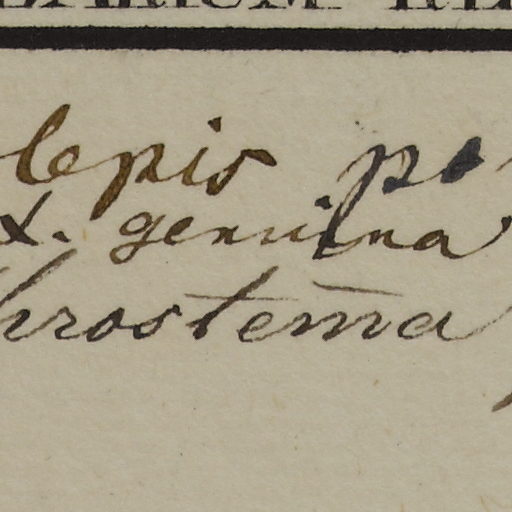 lepis po
x. genuina
hrostema